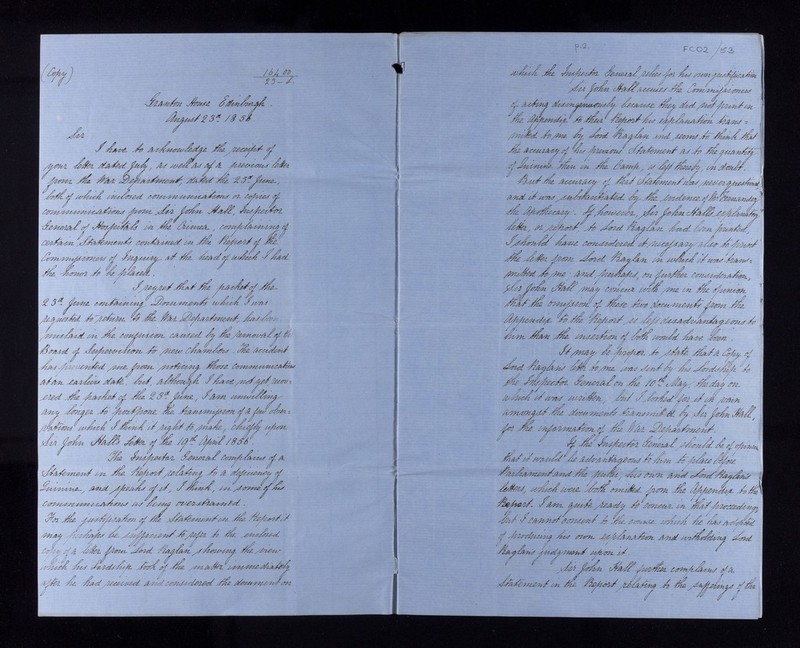 (Copy)
Granton House Edinburgh.
August 23d. 1856.
Sir
I have to acknowledge the receipt of
your letter dated July, as well as of a previous letter
from the War Department, dated the 23d June,
both of which inclosed communications or copies of
communications from Sir John Hall, Inspector
General of Hospitals in the Crimea, complaining of
certain Statements contained in the Report of the
Commissioners of Inquiry at the head of which I had
the honor to be placed.
I regret that the packet of the
23d. June containing Documents which I was
requested to return to the War Department, has been
mislaid in the confusion caused by the removal of the
Board of Supervision to new chambers. The accident
has prevented me from noticing those communications
at an earlier date, but, although I have not yet recov-
ered the packet of the 23d June, I am unwilling
any longer to postpone the transmission of a few obser-
vations which I think it right to make, chiefly upon
Sir John Hall's letter of the 19th April 1856.
The Inspector General complains of a
Statement in the Report relating to a deficiency of
Quinine, and speaks of it, I think, in some of his
communications as being overstrained.
For the justification of the Statement in the Report it
may perhaps be sufficient to refer to the inclosed
copy of a letter from Lord Raglan, shewing the view
which his Lordship took of the matter immediately
after he had received and considered the document on
p. 2
FCO2/53
which the Inspector General relies for his own justification
Sir John Hall accuses the Commissioners
of acting disingenuously because they did not print in
the Appendix to their Report his explanation trans=
mitted to me by Lord Raglan and seems to think that
the accuracy of his previous Statement as to the quantity
of Quinine then in the Camp, is left thereby in doubt.
But the accuracy of that Statement was never questioned,
and it was substantiated by the evidence of
the Apothecary. If however, Sir John Hall's explanatory
letter, or report to Lord Raglan had been printed,
I should have considered it necessary also to print
the letter from Lord Raglan in which it was trans=
mitted to me, and perhaps, on further consideration,
Sir John Hall may concur with me in the opinion
that the omission of these two documents from the
Appendix to the Report is less disadvantageous to
him than the insertion of both would have been.
It may be proper to state that a Copy of
Lord Raglan's letter to me was sent by his Lordship to
the Inspector General on the 10th May, the day on
which it was written, but I looked for it in vain
amongst the documents transmitted by Sir John Hall,
for the information of the War Department.
If the Inspector General should be of opinion
that it would be advantageous to him to place before
Parliament and the public, his own and Lord Raglan's
letters, which were both omitted from the Appendix to the
Report, I am quite ready to concur in that proceeding,
but I cannot consent to the course which he has adopted
of producing his own explanation and witholding Lord
Raglan's judgement upon it
Sir John Hall further complains of a
Statement in the Report relating to the sufferings of the